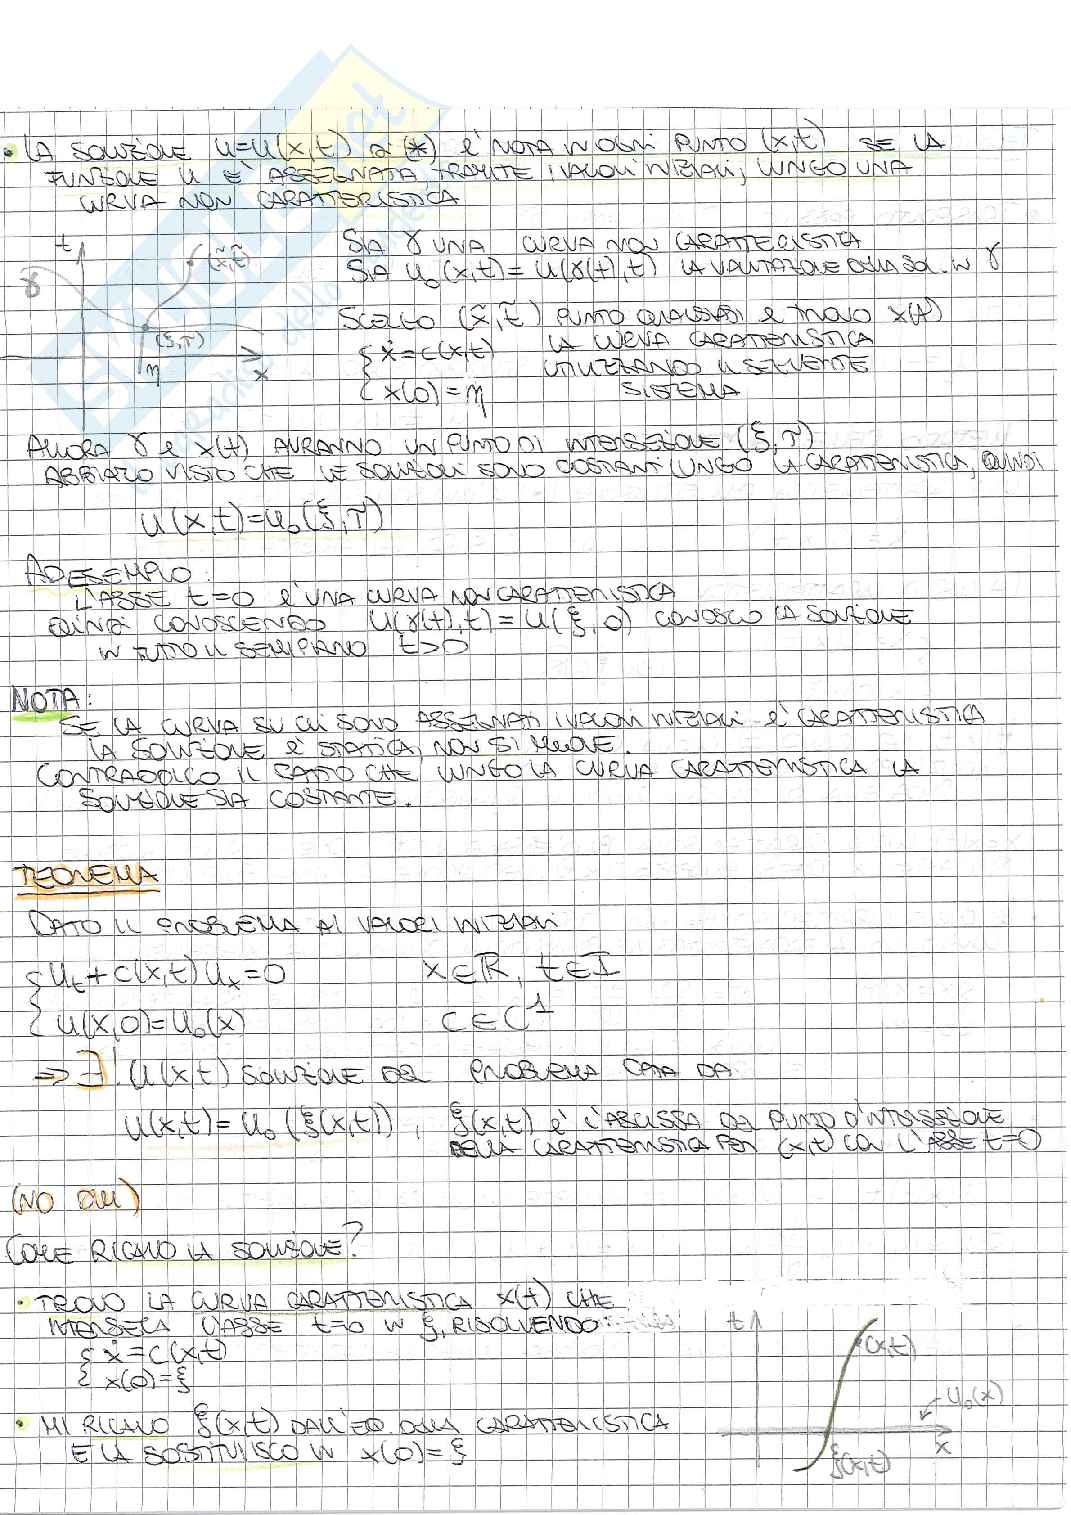 • LA SOLUZIONE u=u(x,t) DI (*) È NOTA IN OGNI PUNTO (x,t) SE LA
FUNZIONE u È ASSEGNATA, TRAMITE I VALORI INIZIALI, LUNGO UNA
CURVA NON CARATTERISTICA
t
γ
(x̃,t̃)
(ξ,τ)
η
x
SIA γ UNA CURVA NON CARATTERISTICA
SIA u₀(x,t)=u(γ(t),t) LA VALUTAZIONE DELLA SOL. IN γ
SCELGO (x̃,t̃) PUNTO QUALSIASI E TROVO x(t)
{ ẋ=c(x,t) LA CURVA CARATTERISTICA
{ x(0)=η UTILIZZANDO IL SEGUENTE
SISTEMA
ALLORA γ E x(t) AVRANNO UN PUNTO DI INTERSEZIONE (ξ,τ)
ABBIAMO VISTO CHE LE SOLUZIONI SONO COSTANTI LUNGO LA CARATTERISTICA, QUINDI
u(x,t)=u₀(ξ,τ)
AD ESEMPIO:
L'ASSE t=0 È UNA CURVA NON CARATTERISTICA
QUINDI CONOSCENDO u(γ(t),t)=u(ξ,0) CONOSCO LA SOLUZIONE
IN TUTTO IL SEMIPIANO t>0
NOTA:
SE LA CURVA SU CUI SONO ASSEGNATI I VALORI INIZIALI È CARATTERISTICA
LA SOLUZIONE È STATICA, NON SI MUOVE.
CONTRADDICO IL FATTO CHE LUNGO LA CURVA CARATTERISTICA LA
SOLUZIONE SIA COSTANTE.
TEOREMA
DATO IL PROBLEMA AI VALORI INIZIALI
{ uₜ+c(x,t)uₓ=0 x∈ℝ, t∈I
{ u(x,0)=u₀(x) c∈C¹
⇒ ∃! u(x,t) SOLUZIONE DEL PROBLEMA DATA DA
u(x,t)=u₀(ξ(x,t)), ξ(x,t) È L'ASCISSA DEL PUNTO D'INTERSEZIONE
DELLA CARATTERISTICA PER (x,t) CON L'ASSE t=0
(NO DIM)
COME RICAVO LA SOLUZIONE?
• TROVO LA CURVA CARATTERISTICA x(t) CHE
INTERSECA L'ASSE t=0 IN ξ, RISOLVENDO
{ ẋ=c(x,t)
{ x(0)=ξ
• MI RICAVO ξ(x,t) DALL'EQ. DELLA CARATTERISTICA
E LA SOSTITUISCO IN x(0)=ξ
t
(x,t)
u₀(x)
x
ξ(x,t)